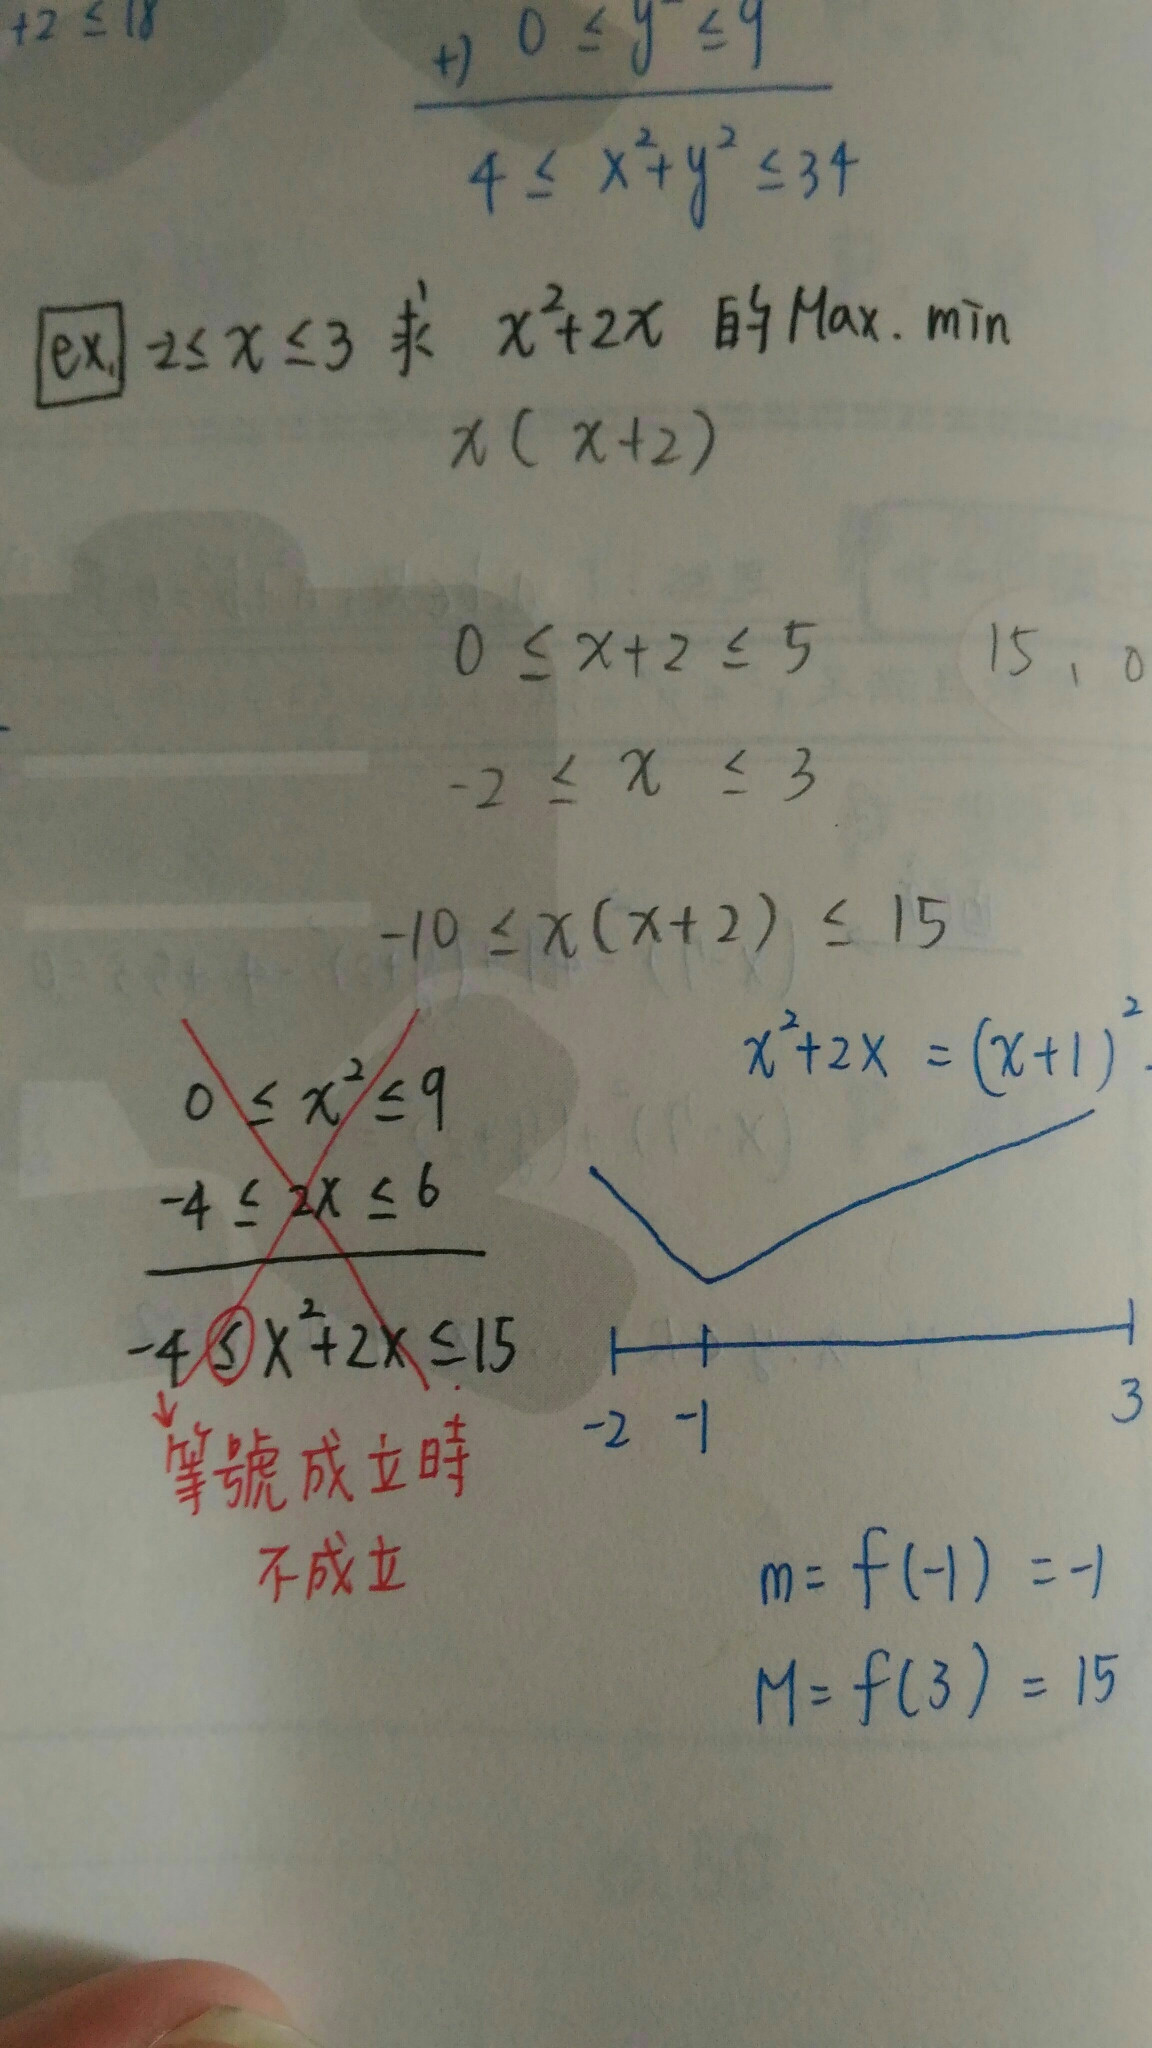 +2 ≤ 18
+) 0 ≤ y² ≤ 9
4 ≤ x²+y² ≤ 34
ex. -2 ≤ x ≤ 3 求 x²+2x 的 Max. min
x ( x+2 )
0 ≤ x+2 ≤ 5 15 , 0
-2 ≤ x ≤ 3
-10 ≤ x(x+2) ≤ 15
x²+2x = (x+1)² -
0 ≤ x² ≤ 9
-4 ≤ 2x ≤ 6
-4 ≤ x²+2x ≤ 15
↓等號成立時
不成立
-2 -1 3
m = f(-1) = -1
M = f(3) = 15